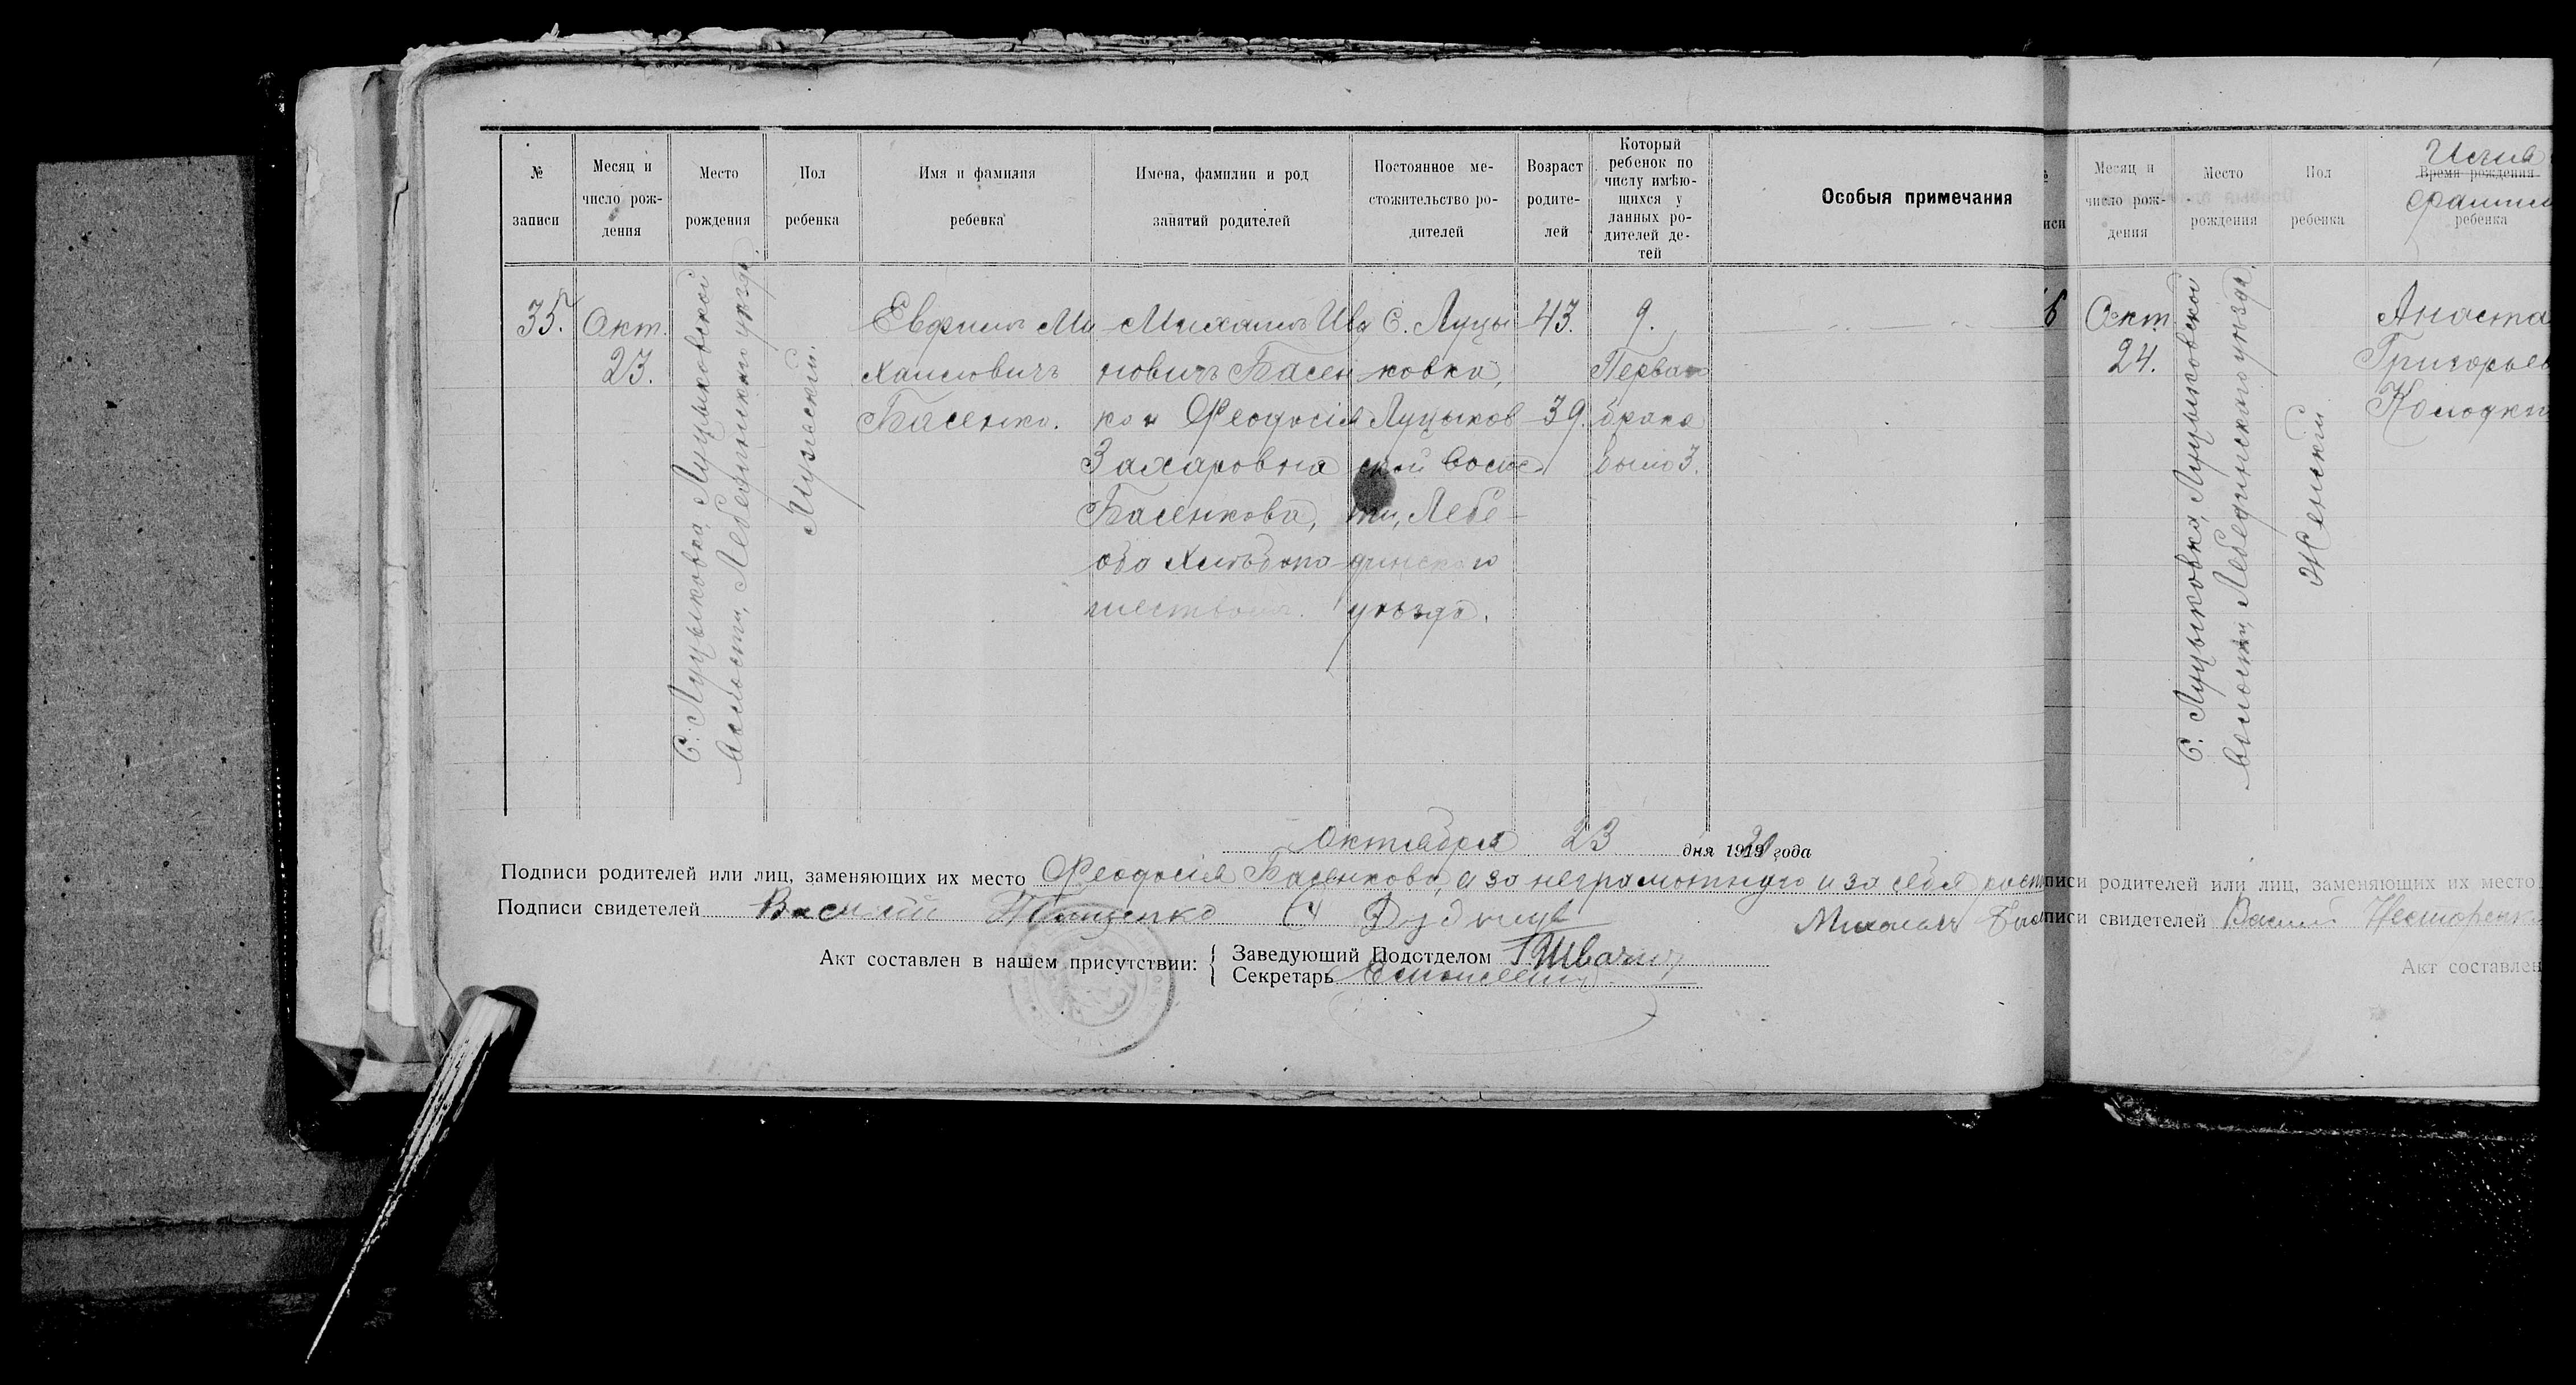 № записи
Месяц и число рождения
Место рождения
Пол ребенка
Имя и фамилия ребенка
Имена, фамилии и род занятий родителей
Постоянное местожительство родителей
Возраст родителей
Который ребенок по числу имѣющихся у данных родителей детей
Особыя примечания
35.
Окт.
23.
С. Луцыковка, Луцыковской
волости, Лебединскаго уѣзда.
Мужескій.
Евфимъ Ми
хаиловичъ
Басенко.
Михаилъ Ива
новичъ Басен
ко и Феодосія
Захаровна
Басенкова,
оба хлѣбопа
шествомъ.
С. Луцы
ковка,
Луцыков
ской волос
ти, Лебе-
динскаго
уѣзда.
43.
39.
9.
Перваго
брака
было 3.
Октября 23 дня 19 года
Подписи родителей или лиц, заменяющих их место Феодосія Басенкова, а за неграмотную и за себя
Михаилъ
Подписи свидетелей Василий
Акт составлен в нашем присутствии:
Заведующий Подотделом
Секретарь
Месяц и число рождения
Место рождения
Пол ребенка
Время рождения
ребенка
6
Окт.
24.
С. Луцыковка, Луцыковской
волости, Лебединскаго уѣзда.
Женскій
Анаста
Григорьев
писи родителей или лиц, заменяющих их место
писи свидетелей
Акт составлен